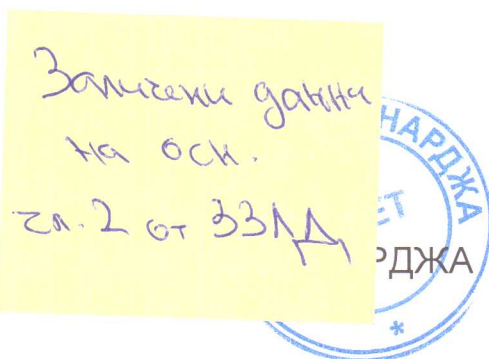 Заличени данни
на осн.
чл. 2 от ЗЗЛД
НАРДЖА
ЕТ
РДЖА
*